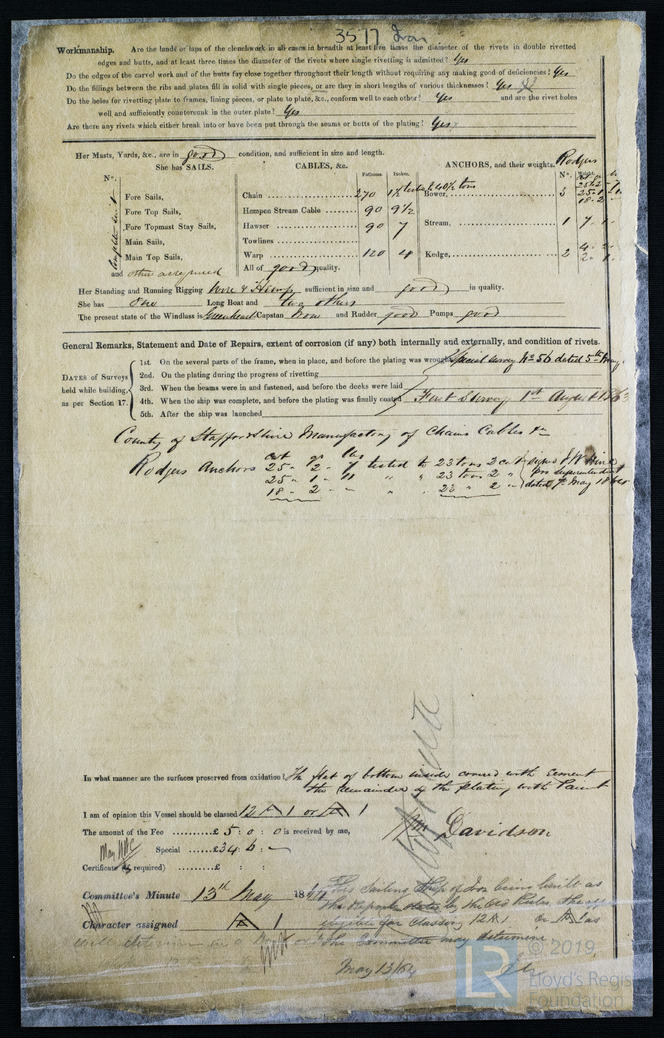 3517 Iron
Workmanship. Are the lands or laps of the clenchwork in all cases in breadth at least five times the diameter of the rivets in double rivetted
edges and butts, and at least three times the diameter of the rivets where single rivetting is admitted? Yes
Do the edges of the carvel work and of the butts fay close together throughout their length without requiring any making good of deficiencies? Yes
Do the fillings between the ribs and plates fill in solid with single pieces, or are they in short lengths of various thicknesses? Yes
Do the holes for rivetting plate to frames, lining pieces, or plate to plate, &c., conform well to each other? Yes and are the rivet holes
well and sufficiently countersunk in the outer plate? Yes
Are there any rivets which either break into or have been put through the seams or butts of the plating? Yes
Her Masts, Yards, &c., are in good condition, and sufficient in size and length.
She has SAILS. CABLES, &c. ANCHORS, and their weights. Rodgers
N°. Fathoms Inches N°.
Fore Sails, Chain 270 Bower, 3 25-2 25-1 18-2
Fore Top Sails, Hempen Stream Cable 90 9½
Fore Topmast Stay Sails, Hawser 90 7 Stream, 1 7
Main Sails, Towlines
Main Top Sails, Warp 120 4 Kedge, 2
and other as required All of good quality.
Her Standing and Running Rigging Wire & Hemp sufficient in size and good in quality.
She has One Long Boat and two others
The present state of the Windlass is Greenheart Capstan Iron and Rudder good Pumps good
General Remarks, Statement and Date of Repairs, extent of corrosion (if any) both internally and externally, and condition of rivets.
DATES of Surveys held while building, as per Section 17.
1st. On the several parts of the frame, when in place, and before the plating was wrought Special Survey N° 56 dated 5th May
2nd. On the plating during the progress of rivetting
3rd. When the beams were in and fastened, and before the decks were laid
4th. When the ship was complete, and before the plating was finally coated First Survey 1st August 1863
5th. After the ship was launched
County of Staffordshire Manufactory of Chains Cables &c
cwt qr lbs
Rodgers Anchors 25 - 2 - 7 tested to 23 tons 2 cwt signed
25 - 1 - 11 " " 23 tons 2 "
18 - 2 - " " 23 " 2 " dated May 1864
In what manner are the surfaces preserved from oxidation? The flat of bottom inside covered with cement
the remainder of the plating with Paint
I am of opinion this Vessel should be classed 12 A 1 or A 1
The amount of the Fee £5 : 0 : 0 is received by me,
Wm Davidson
Special £34 : 6 : -
Certificate (if required) £ :
Committee's Minute 13th May 1864
This Sailing Ship of Iron being built as
the Report states by the Old Rules She is
Character assigned A 1
eligible for classing 12 A 1 or A 1 as
the Committee may determine
May 13/64
© 2019
LR
Lloyd's Regis
Foundation